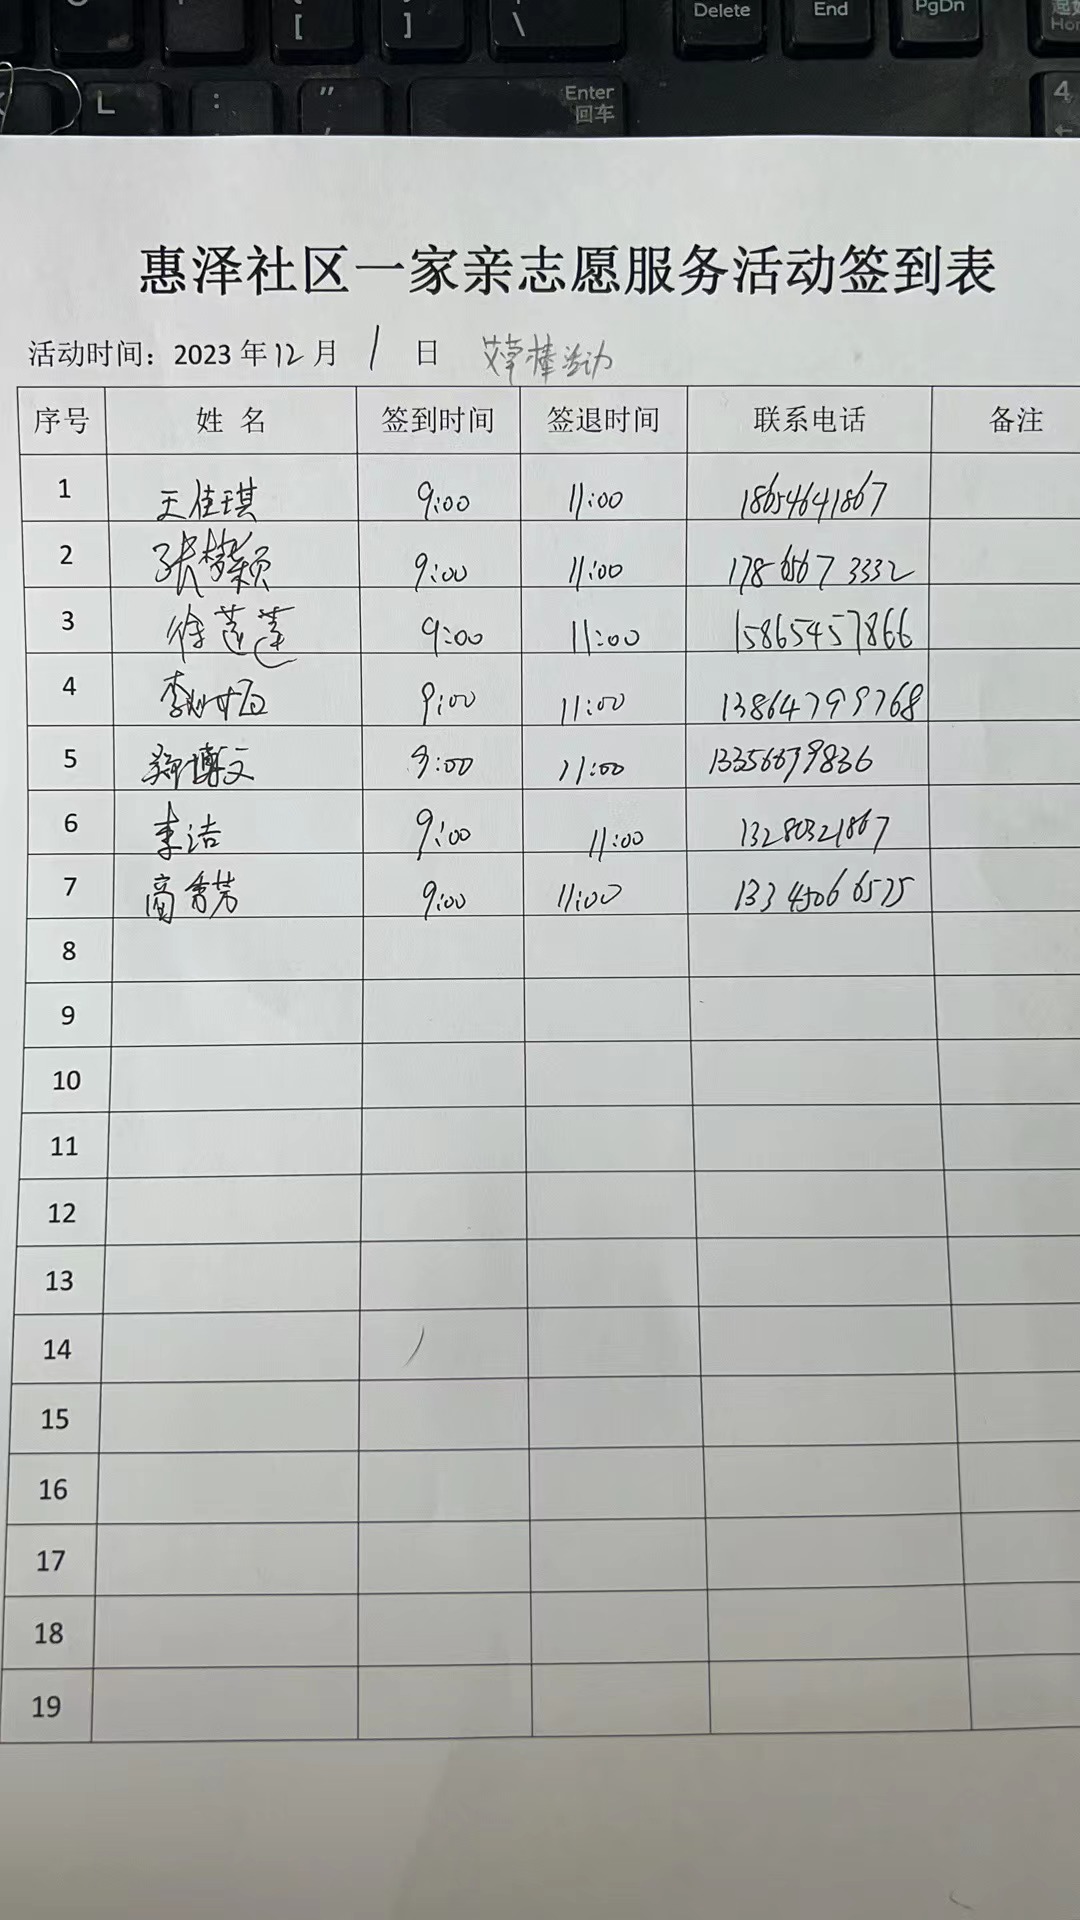 Delete End PgDn
[ ] \
L : " Enter 回车 4
惠泽社区一家亲志愿服务活动签到表
活动时间：2023年12月1日 艾草棒活动
序号 姓名 签到时间 签退时间 联系电话 备注
1 王佳琪 9:00 11:00 18654641867
2 张梦颖 9:00 11:00 17865673332
3 徐莲莲 9:00 11:00 15865457866
4 9:00 11:00 13864799768
5 郭博文 9:00 11:00 13356679836
6 李洁 9:00 11:00 13280321867
7 商秀芳 9:00 11:00 13345066575
8
9
10
11
12
13
14
15
16
17
18
19